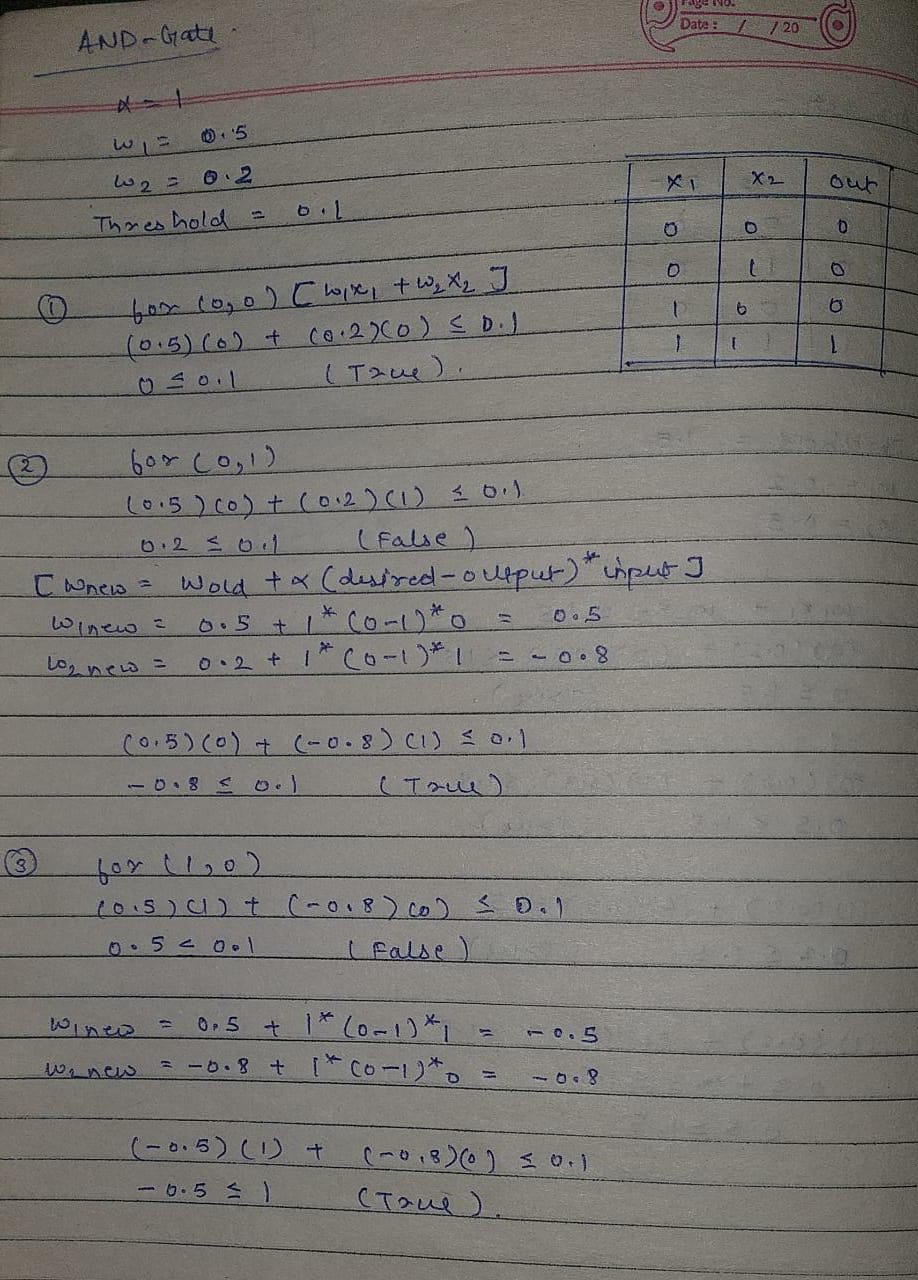 Page No.
Date : / / 20
AND-Gate
α = 1
w1 = 0.5
w2 = 0.2
Threshold = 0.1
x1 x2 out
0 0 0
0 1 0
1 0 0
1 1 1
① for (0,0) [w1x1 + w2x2]
(0.5)(0) + (0.2)(0) ≤ 0.1
0 ≤ 0.1 (True).
② for (0,1)
(0.5)(0) + (0.2)(1) ≤ 0.1
0.2 ≤ 0.1 (False)
[wnew = wold + α (desired-output)* input]
w1new = 0.5 + 1* (0-1)* 0 = 0.5
w2new = 0.2 + 1* (0-1)* 1 = -0.8
(0.5)(0) + (-0.8)(1) ≤ 0.1
-0.8 ≤ 0.1 (True)
③ for (1,0)
(0.5)(1) + (-0.8)(0) ≤ 0.1
0.5 < 0.1 (False)
w1new = 0.5 + 1* (0-1)*1 = -0.5
w2new = -0.8 + 1* (0-1)*0 = -0.8
(-0.5)(1) + (-0.8)(0) ≤ 0.1
-0.5 ≤ 1 (True).